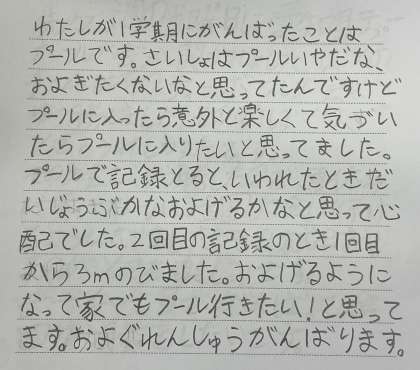 わたしが1学期にがんばったことは
プールです。さいしょはプールいやだな、
およぎたくないなと思ってたんですけど
プールに入ったら意外と楽しくて気づい
たらプールに入りたいと思ってました。
プールで記録とると、いわれたときだ
いじょうぶかなおよげるかなと思って心
配でした。2回目の記録のとき1回目
から3mのびました。およげるように
なって家でもプール行きたい!と思って
ます。およぐれんしゅうがんばります。